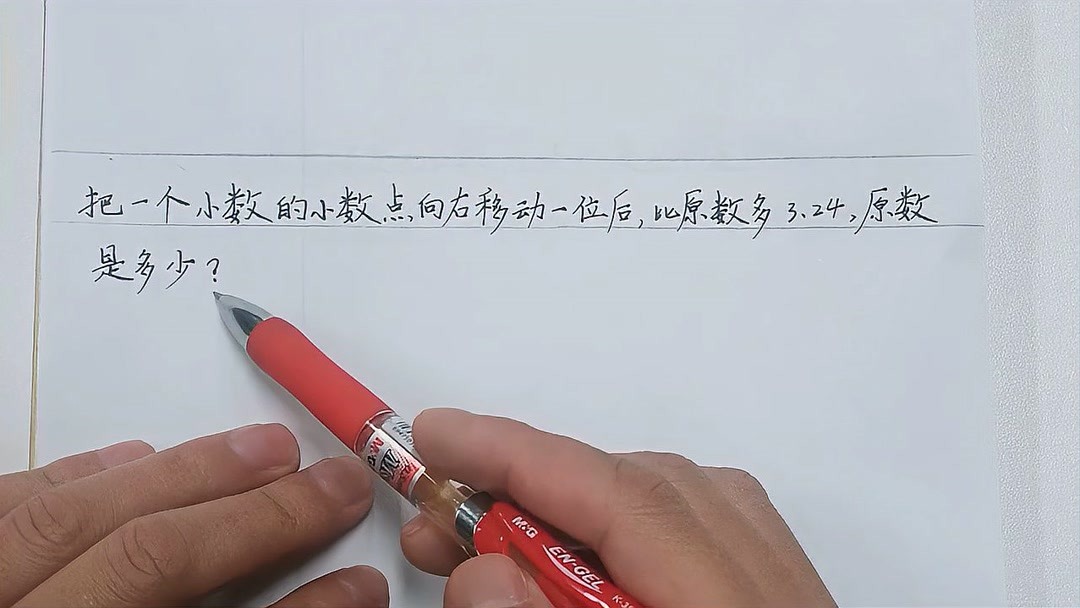 把一个小数的小数点向右移动一位后,比原数多3.24,原数
是多少?
M&G
EN·GEL